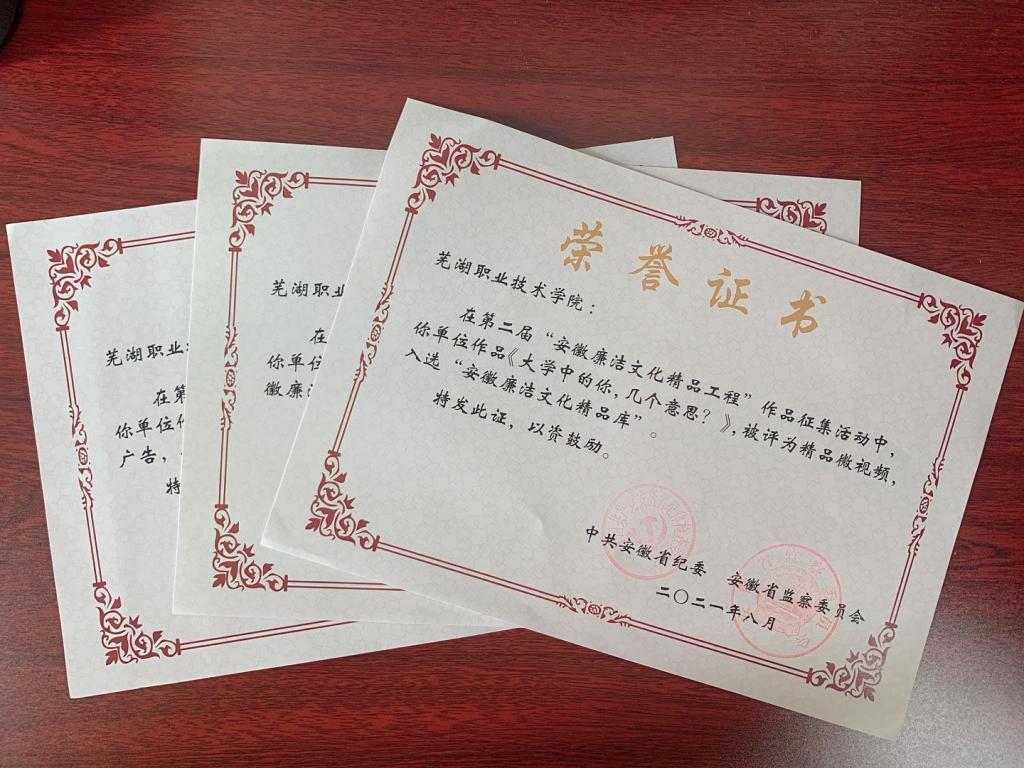 荣誉证书
芜湖职业技术学院：
在第二届“安徽廉洁文化精品工程”作品征集活动中，
你单位作品《大学中的你，几个意思？》，被评为精品微视频，
入选“安徽廉洁文化精品库”。
特发此证，以资鼓励。
中共安徽省纪委 安徽省监察委员会
二〇二一年八月
芜湖职业
在
你单位
徽廉洁
芜湖职业
在第
你单位作
广告，
特